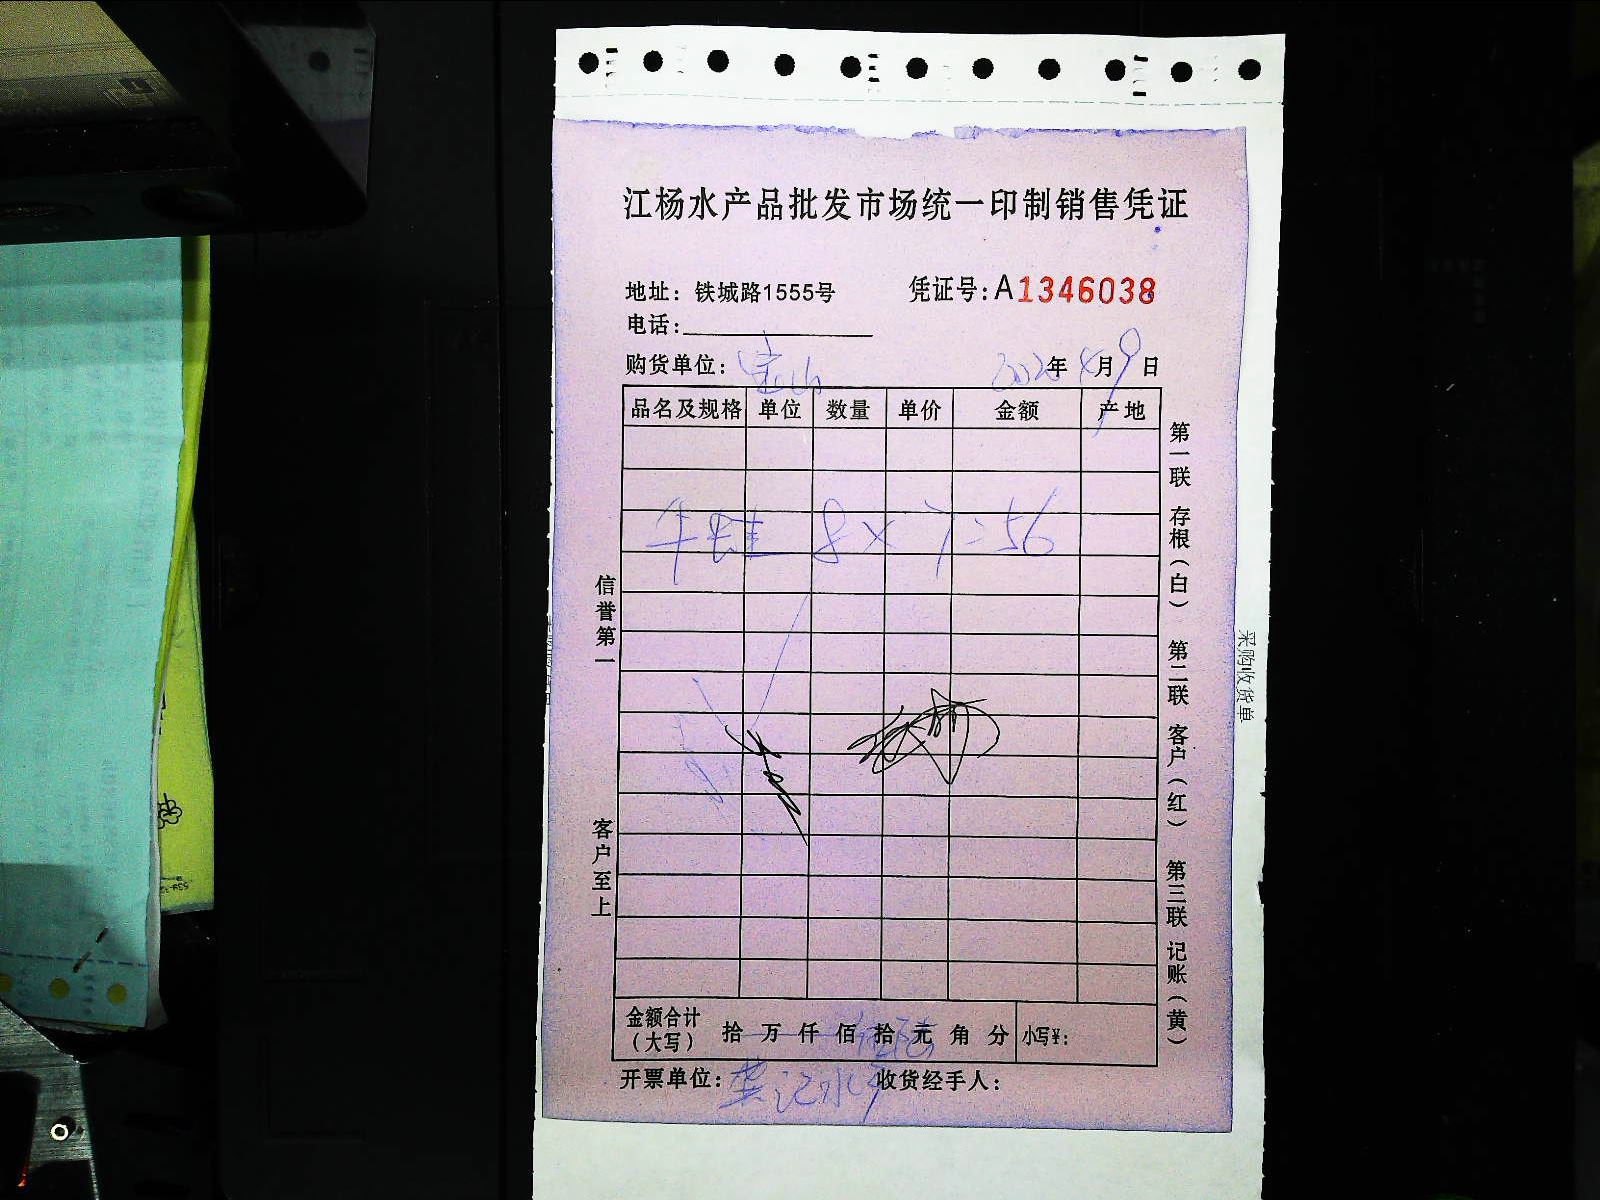 江杨水产品批发市场统一印制销售凭证
地址：铁城路1555号 凭证号：A1346038
电话：
购货单位：宝山 年4月9日
品名及规格 单位 数量 单价 金额 产地
牛蛙 8×7=56
信誉第一
客户至上
第一联 存根（白） 第二联 客户（红） 第三联 记账（黄）
采购收货单
金额合计（大写） 拾 万 仟 佰 伍拾陆元 角 分 小写¥：
开票单位： 记水产 收货经手人：